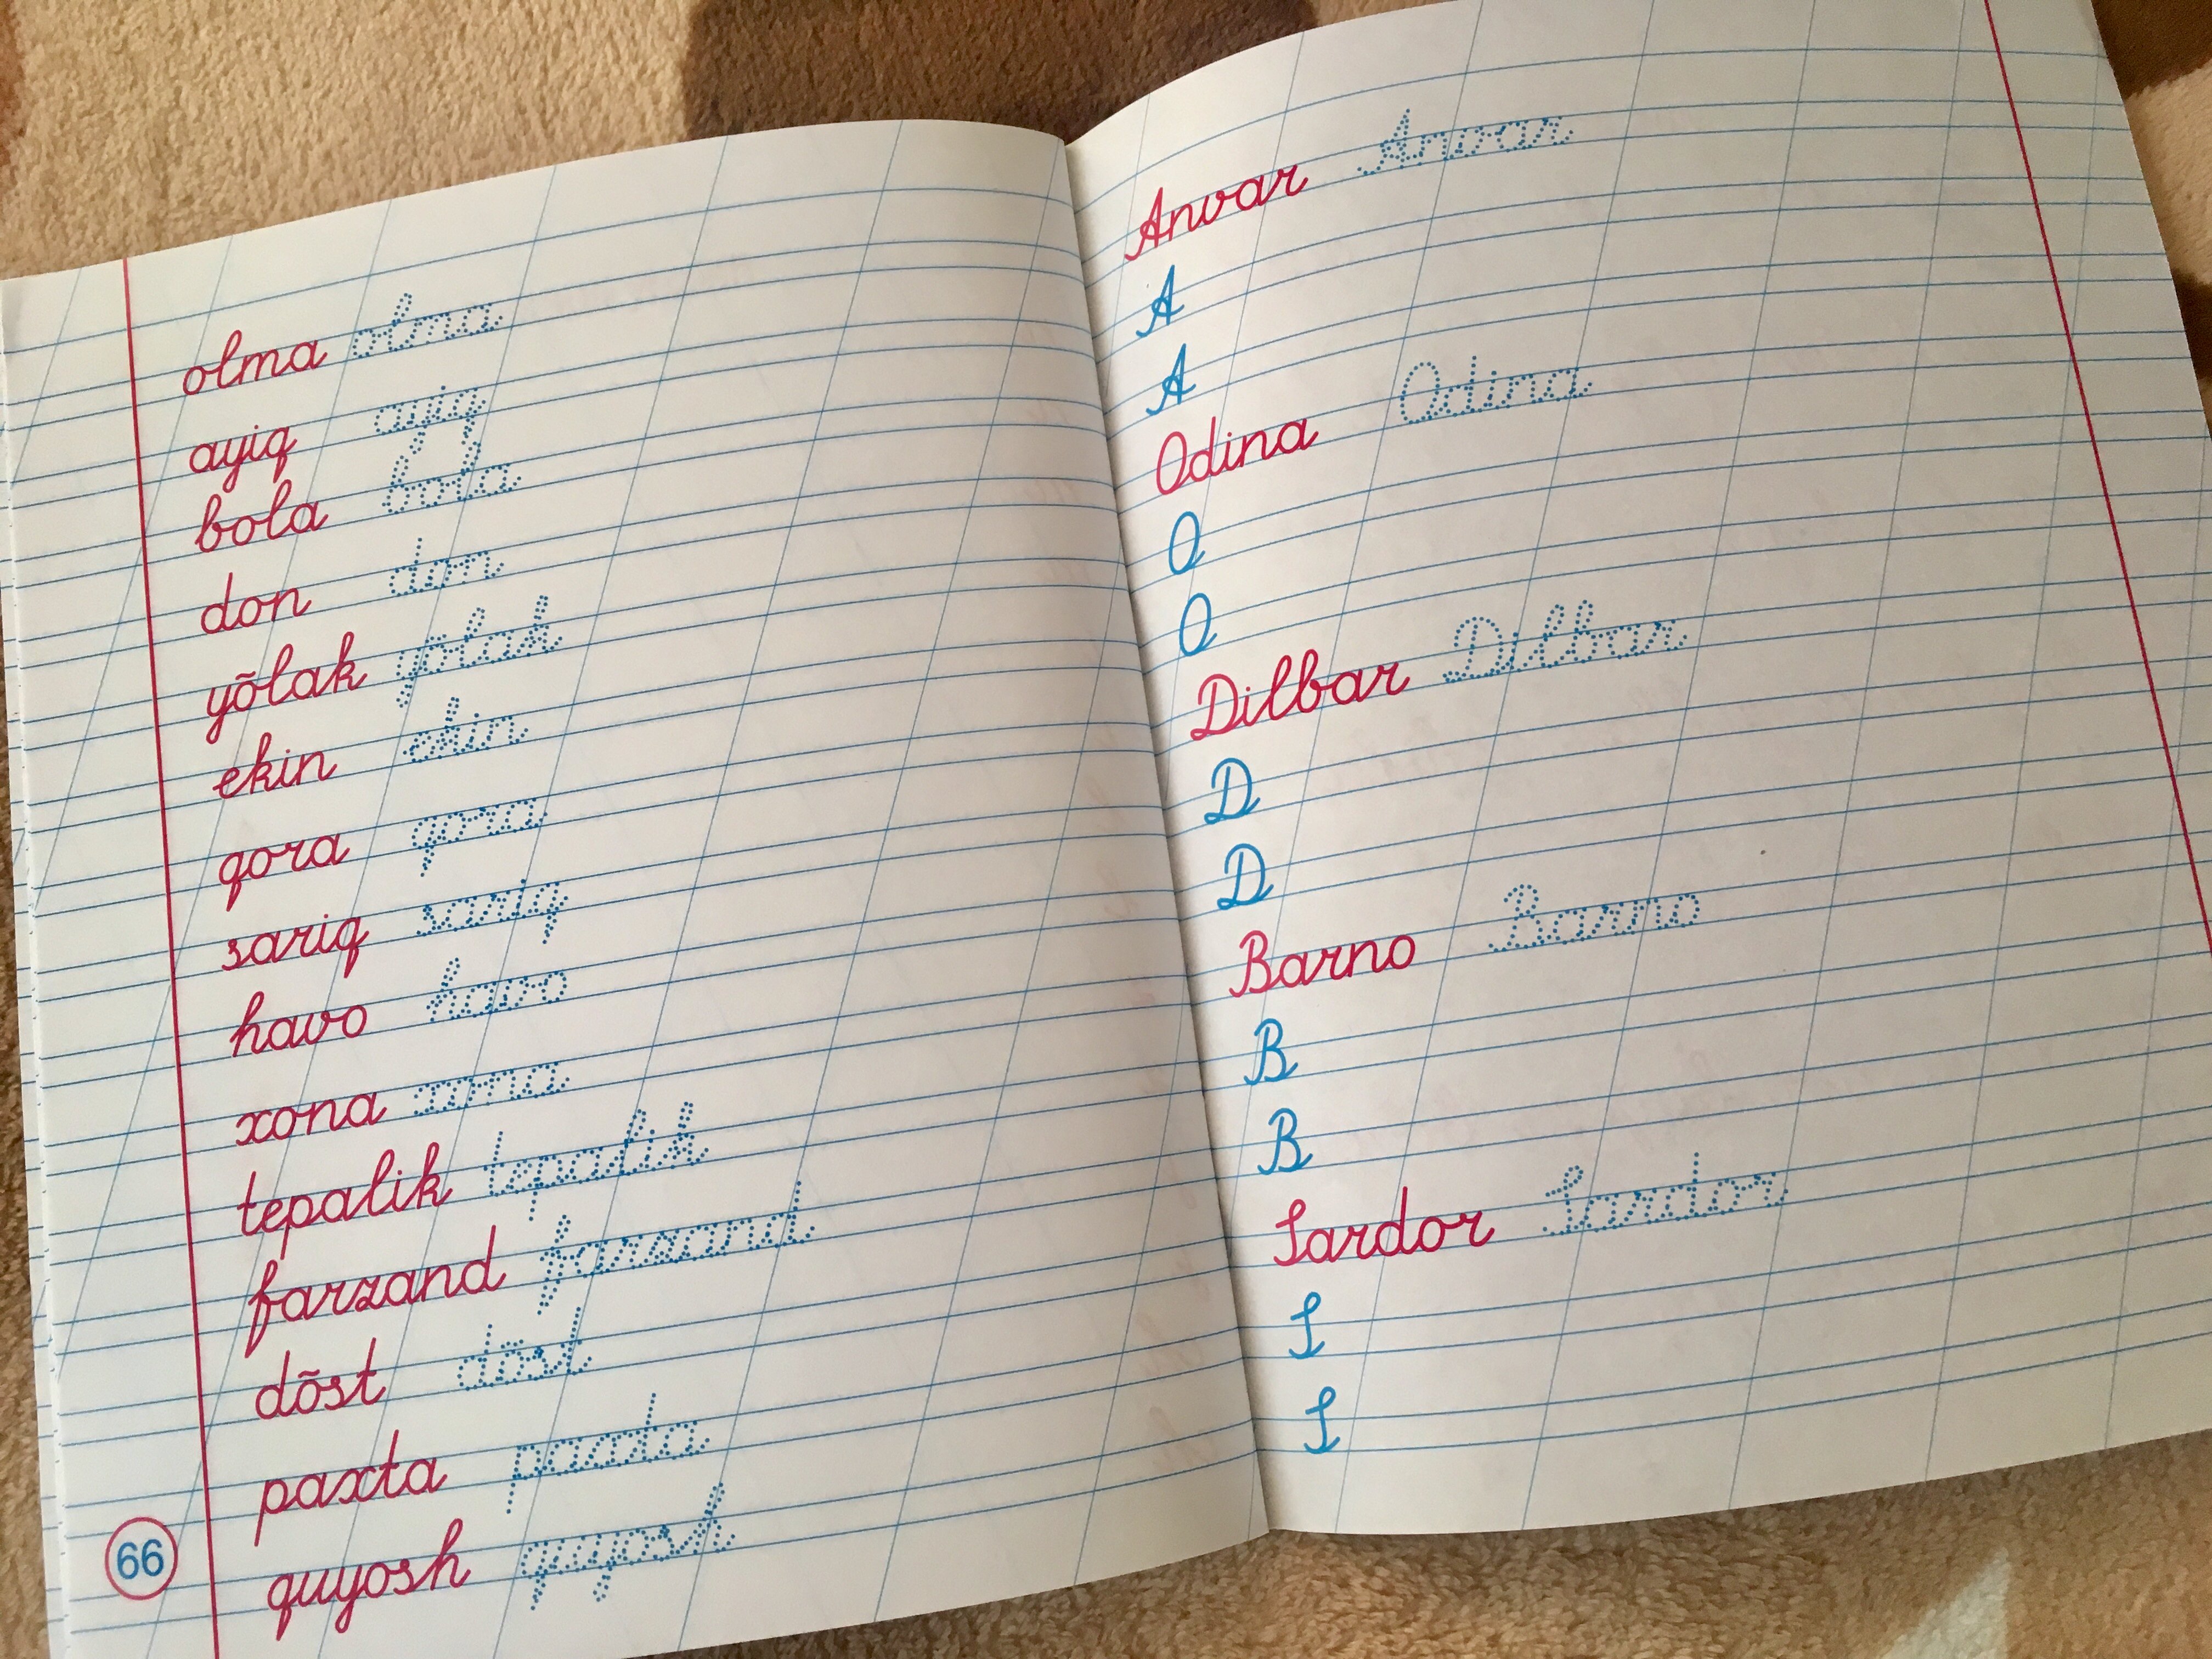 olma olma
ayiq ayiq
bola bola
don don
yõlak yõlak
ekin ekin
qora qora
sariq sariq
havo havo
xona xona
tepalik tepalik
farzand farzand
dõst dõst
paxta paxta
quyosh quyosh
66
Anvar Anvar
A
A
Odina Odina
O
O
Dilbar Dilbar
D
D
Barno Barno
B
B
Sardor Sardor
S
S